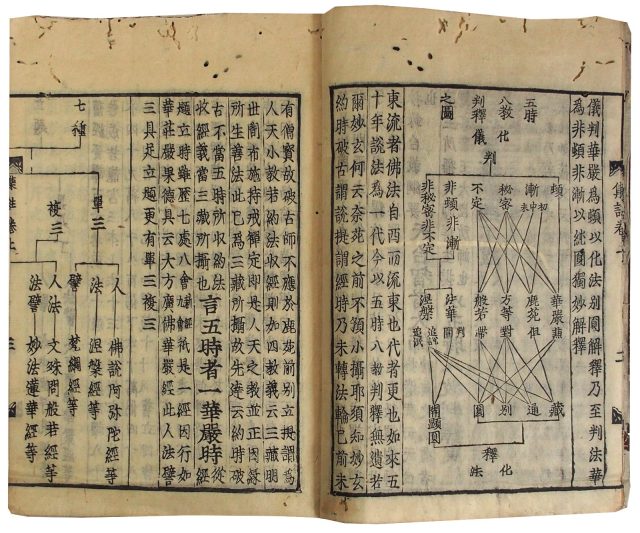 儀判華嚴為頓以化法別圓解釋乃至判法華
為非頓非漸以純圓獨妙解釋
五時
八教化
判釋儀
之圖
判
頓
漸 初中末
秘密
不定
非頓非漸
非秘密非不定
華嚴兼
鹿苑但
方等對
般若帶
法華開
涅槃追說追泯
藏
通
別
圓
開顯圓
釋
化
法
東流者佛法自西而流東也代者更也如來五
十年說法為一代今以五時八教判釋無遺若
爾妙玄何云奈苑之前不預小攝耶須知妙玄
約時破古謂說提謂經時乃未轉法輪已前未
集註卷上
二
有僧寶故破古師不應於鹿苑前別立提謂為
人天小教若約法收經則如四教義云三藏明
世間布施持戒禪定即是人天之教並正因緣
所生善法此已為三藏所攝故先達云約時破
古不當五時所收約法
收經義當三藏所攝也 言五時者一華嚴時從
題立時雖歷七處八會
是一經因行如
華莊嚴果德具云大方廣佛華嚴經此人法譬
三具足立題更有單三複三
七種
單三
人 佛說阿彌陀經等
法 涅槃經等
譬 梵網經等
複三
人法 文殊問般若經等
法譬 妙法蓮華經等
集註卷上
三